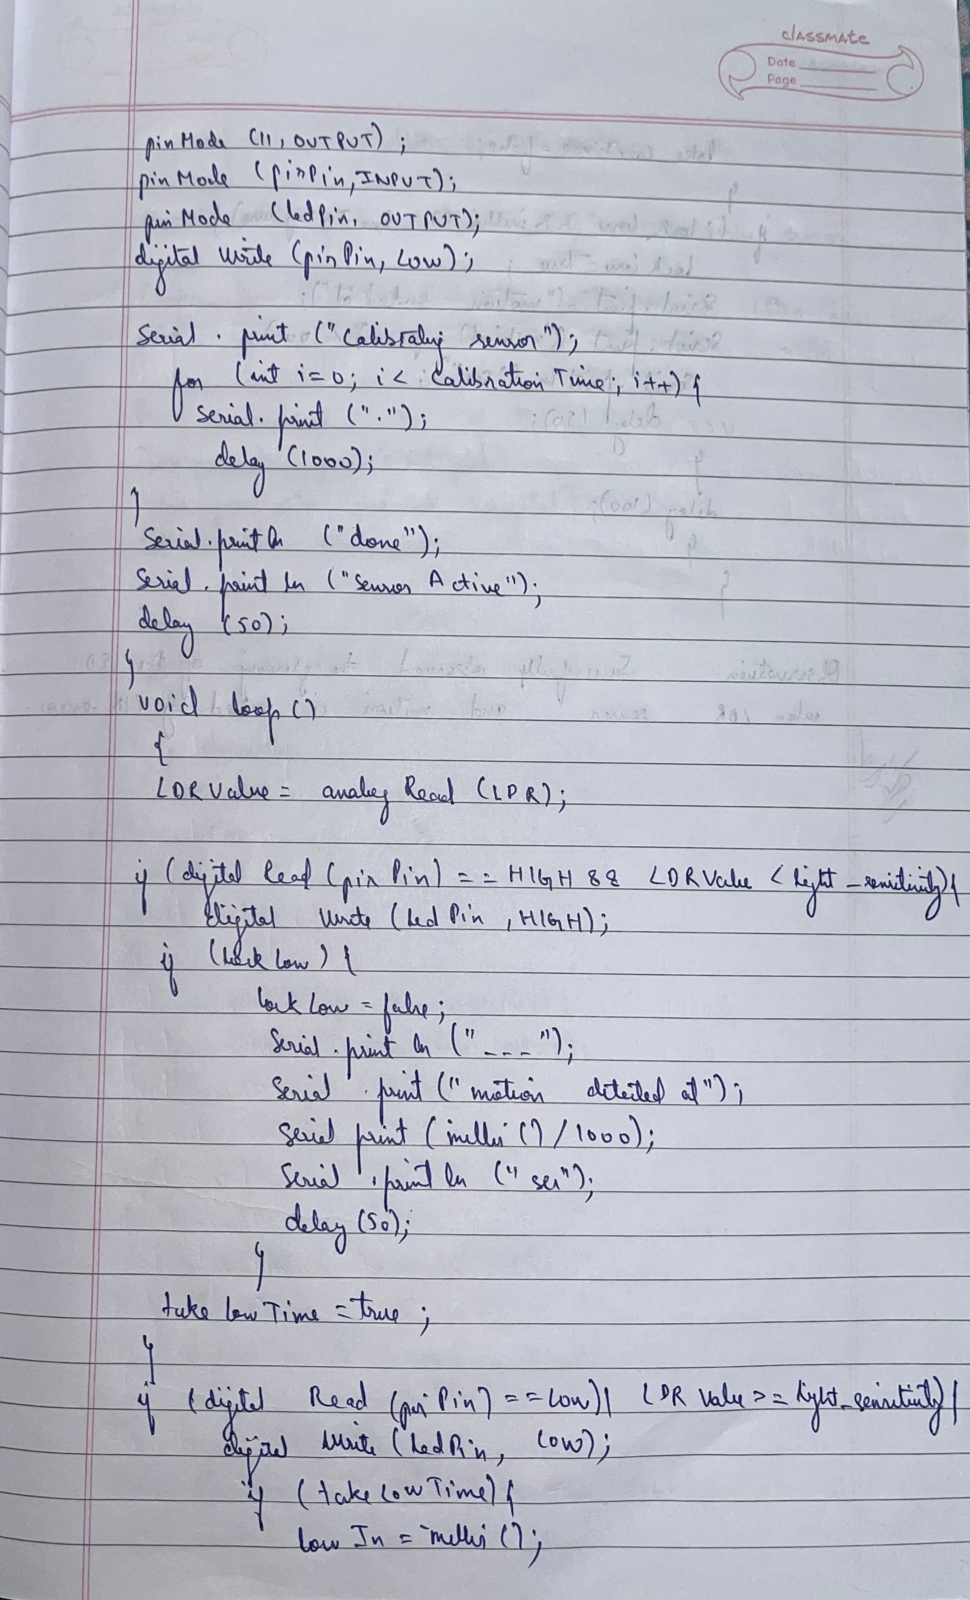 classmate
Date
Page
pinMode (11, OUTPUT);
pinMode (pirPin, INPUT);
pinMode (ledPin, OUTPUT);
digital write (pirPin, LOW);
Serial . print ("Calibrating sensor");
for (int i=0; i< Calibration Time; i++) {
serial. print (".");
delay (1000);
}
Serial.print ln ("done");
Serial. print ln ("Sensor Active");
delay (50);
}
void loop ()
{
LDR Value = analog Read (LDR);
if (digital Read (pir Pin) == HIGH && LDR Value < light_sensitivity) {
digital write (led Pin, HIGH);
if (lock low) {
lock Low = false;
Serial. print ln ("---");
Serial . print ("motion detected at");
Serial print (millis () / 1000);
Serial . print ln ("sec");
delay (50);
}
take low Time = true;
}
if (digital Read (pir Pin) == low) | LDR Value >= light_sensitivity) {
digital Write (led Pin, LOW);
if (take low Time) {
low In = millis ();